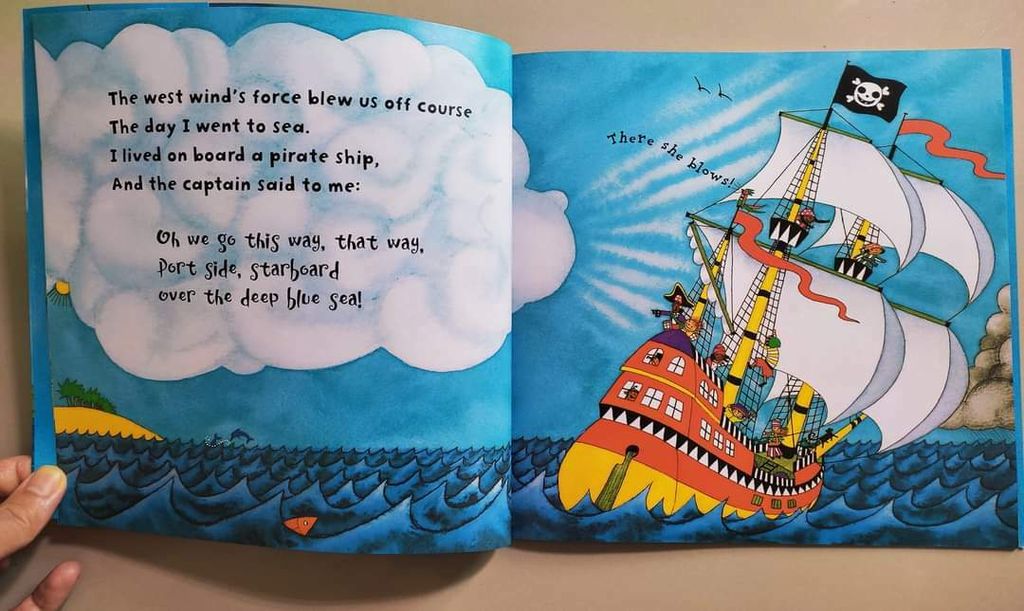 The west wind's force blew us off course
The day I went to sea.
I lived on board a pirate ship,
And the captain said to me:
Oh we go this way, that way,
Port side, starboard
over the deep blue sea!
There she blows!